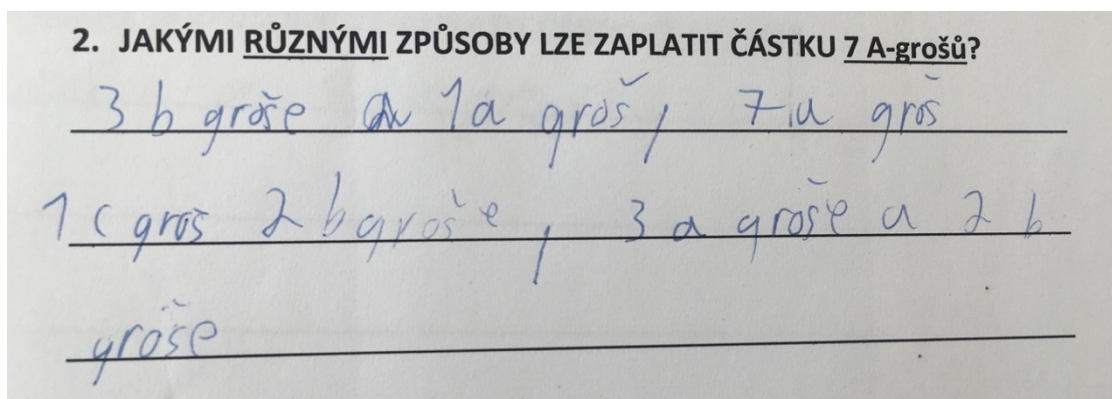 2. JAKÝMI RŮZNÝMI ZPŮSOBY LZE ZAPLATIT ČÁSTKU 7 A-grošů?
3 b groše a 1a groš, 7 a groš
1 c groš 2 b groše, 3 a groše a 2 b
groše